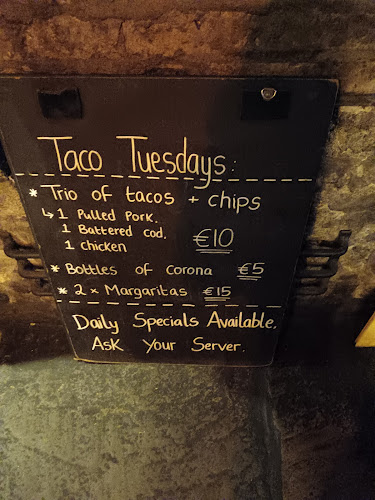 Taco Tuesdays:
* Trio of tacos + chips
↳ 1 Pulled Pork.
1 Battered Cod.
1 chicken €10
* Bottles of Corona €5
* 2 x Margaritas €15
Daily Specials Available.
Ask Your Server.